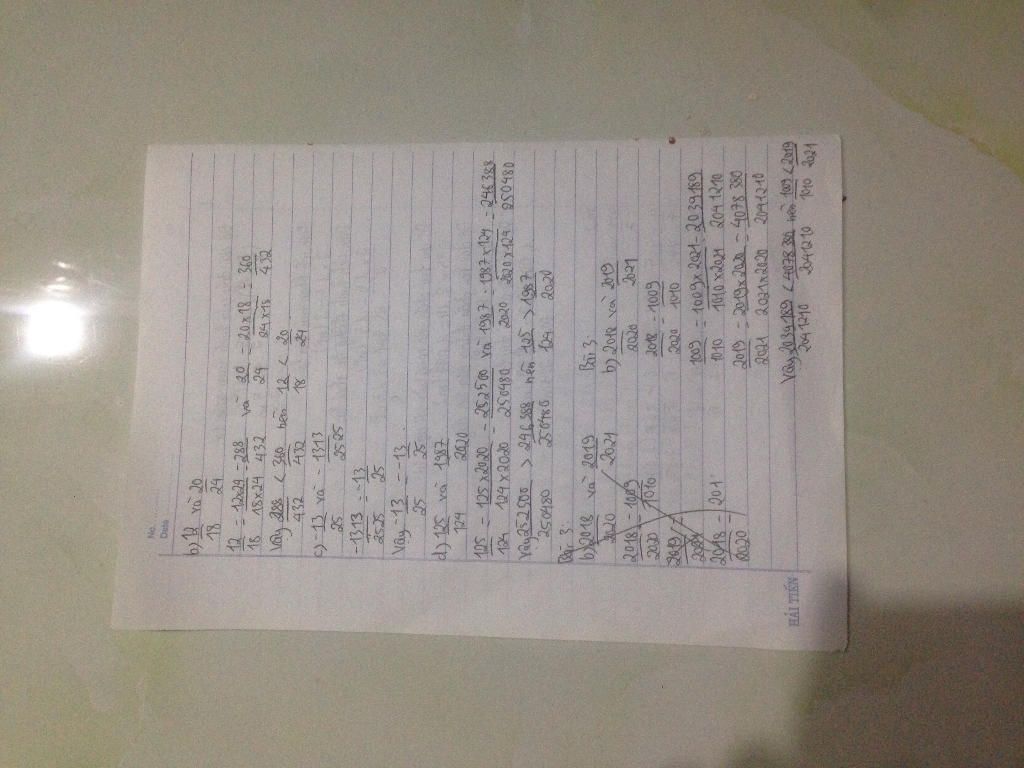 No. ......
Date
b) 12/18 và 20/24
12/18 = 12x24/18x24 = 288/432 và 20/24 = 20x18/24x18 = 360/432
Vậy 288/432 < 360/432 nên 12/18 < 20/24
c) -13/25 và -1313/2525
-1313/2525 = -13/25
Vậy -13/25 = -13/25.
d) 125/124 và 1987/2020
125/124 = 125x2020/124x2020 = 252500/250480 và 1987/2020 = 1987x124/2020x124 = 246388/250480
Vậy 252500/250480 > 246388/250480 nên 125/124 > 1987/2020
Bài 3:
b) 2018/2020 và 2019/2021
2018/2020 = 1009/1010
2019/2021 =
2018/2020 = 201
Bài 3:
b) 2018/2020 và 2019/2021
2018/2020 = 1009/1010
1009/1010 = 1009x2021/1010x2021 = 2039189/2041210
2019/2021 = 2019x2020/2021x2020 = 4078380/2041210
Vậy 2039189/2041210 < 4078380/2041210 nên 1009/1010 < 2019/2021
HẢI TIẾN